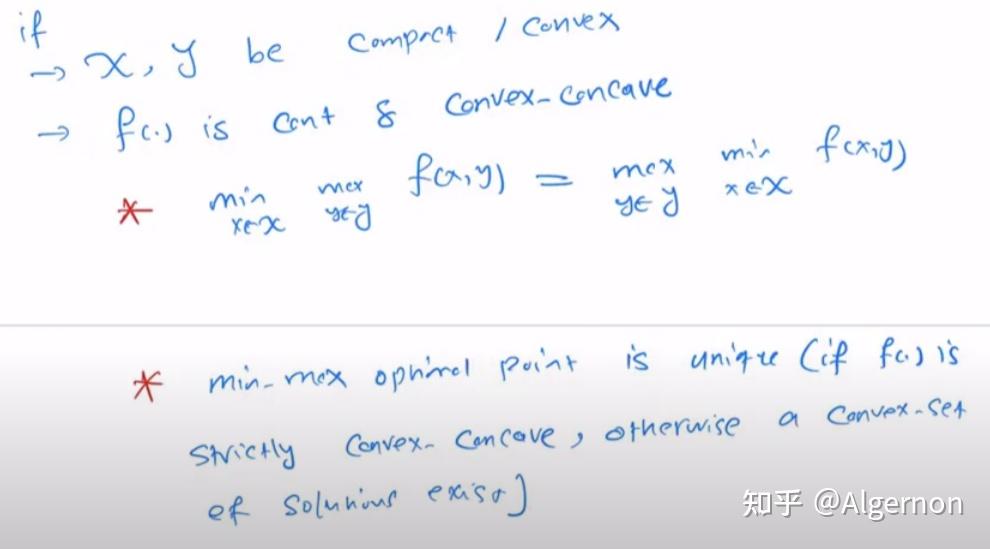 if
→ X, Y be compact / convex
→ f(.) is cont & convex-concave
* min max f(x,y) = max min f(x,y)
x∈X y∈Y y∈Y x∈X
* min-max optimal point is unique (if f(.) is
strictly convex-concave, otherwise a convex-set
of solutions exist)
知乎 @Algernon